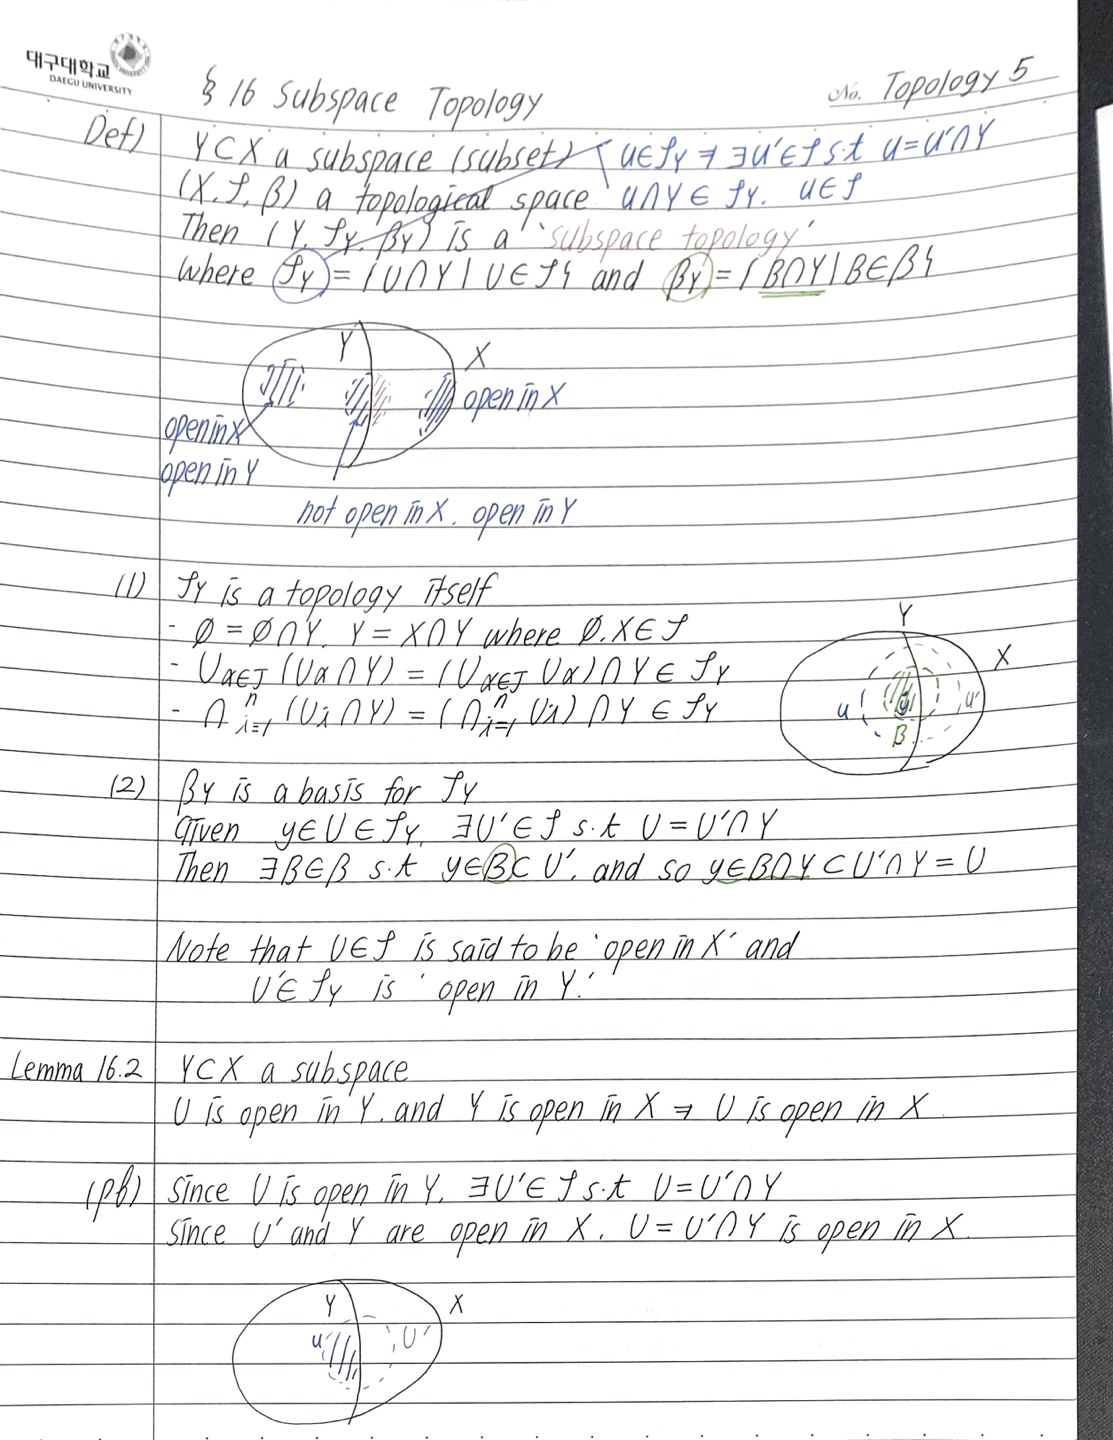 대구대학교
DAEGU UNIVERSITY
§ 16 Subspace Topology
No. Topology 5
Def) Y⊂X a subspace (subset) U∈𝒯Y ⇒ ∃U'∈𝒯 s.t U=U'∩Y
(X, 𝒯, β) a topological space U∩Y∈ 𝒯Y. U∈𝒯
Then (Y, 𝒯Y, βY) is a 'subspace topology'
where 𝒯Y = {U∩Y | U∈𝒯} and βY = {B∩Y | B∈β}
Y
X
open in X
open in X
open in Y
not open in X. open in Y
(1) 𝒯Y is a topology itself
- ∅ = ∅∩Y, Y = X∩Y where ∅, X∈𝒯
- ∪α∈J (Uα∩Y) = (∪α∈J Uα)∩Y ∈ 𝒯Y
- ∩ⁿi=1 (Ui∩Y) = (∩ⁿi=1 Ui)∩Y ∈ 𝒯Y
Y
X
U
y
U'
B
(2) βY is a basis for 𝒯Y
Given y∈U∈𝒯Y, ∃U'∈𝒯 s.t U = U'∩Y
Then ∃B∈β s.t y∈B⊂U', and so y∈B∩Y⊂U'∩Y = U
Note that U∈𝒯 is said to be 'open in X' and
U'∈ 𝒯Y is 'open in Y.'
Lemma 16.2 Y⊂X a subspace
U is open in Y. and Y is open in X ⇒ U is open in X
(pf) Since U is open in Y, ∃U'∈𝒯 s.t U=U'∩Y
Since U' and Y are open in X, U = U'∩Y is open in X.
Y
X
U
U'